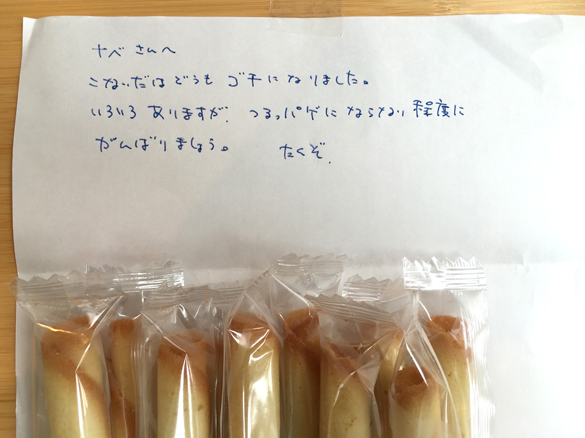 ナベさんへ
こないだはどうもゴチになりました。
いろいろありますが、つるっパゲにならない程度に
がんばりましょう。 たくぞ.